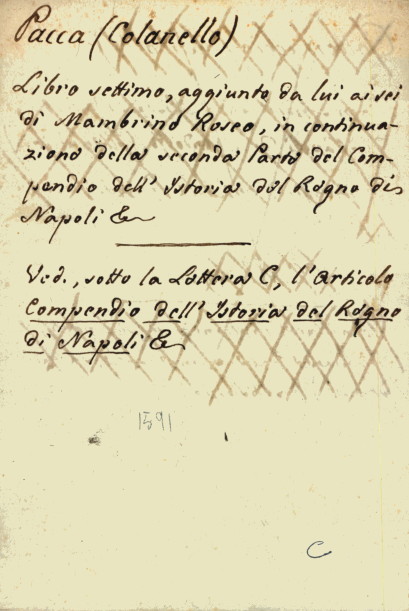 Pacca (Colanello)
Libro settimo, aggiunto da lui ai sei
di Mambrino Roseo, in continua-
zione della seconda Parte del Com-
pendio dell' Istoria del Regno di
Napoli &
Ved., sotto la Lettera C, l'Articolo
Compendio dell' Istoria del Regno
di Napoli &
1591
C